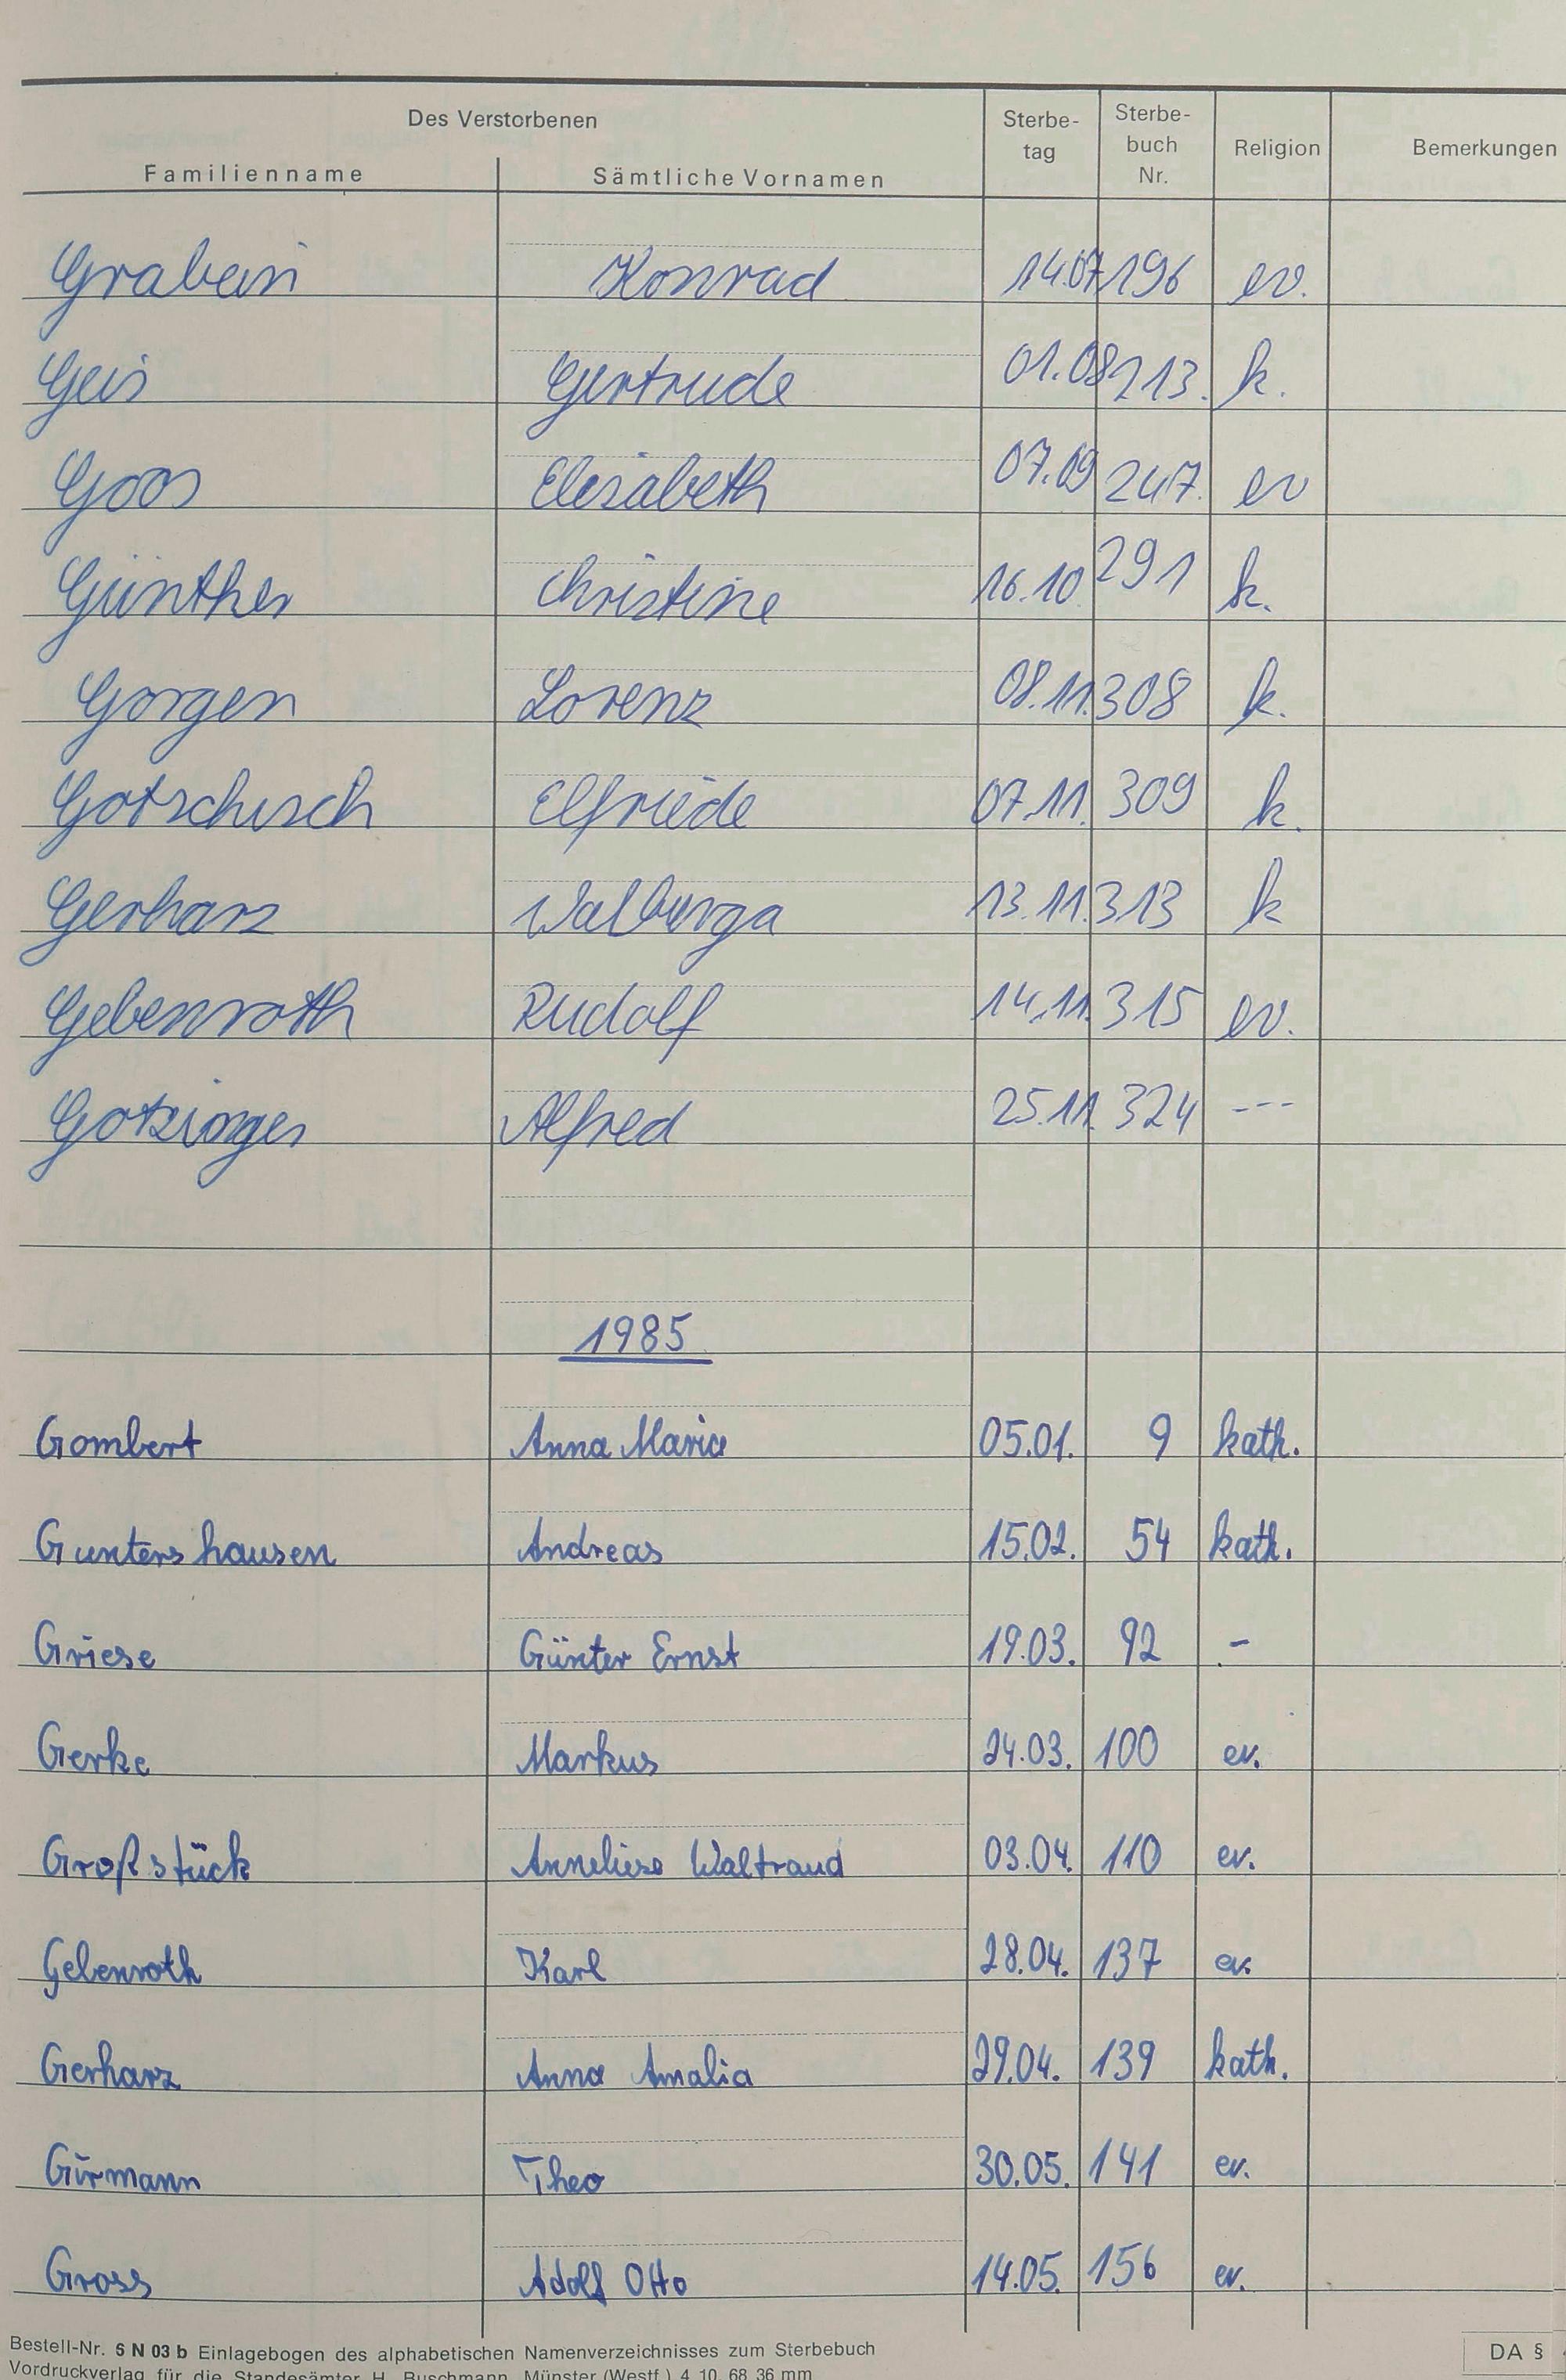 Des Verstorbenen
Familienname Sämtliche Vornamen Sterbe-tag Sterbe-buch Nr. Religion Bemerkungen
Grabein Konrad 14.07 196 ev.
Geis Gertrude 01.08 213. k.
Goos Elisabeth 07.09 247. ev
Günther Christine 16.10 291 k.
Gorgen Lorenz 08.11. 308 k.
Gotschisch Elfriede 07.11. 309 k.
Gerharz Walburga 13.11. 313 k
Gebenroth Rudolf 14.11. 315 ev.
Gotzinger Alfred 25.11. 324 ---
1985
Gombert Anna Maria 05.01. 9 kath.
Guntershausen Andreas 15.02. 54 kath.
Griese Günter Ernst 19.03. 92 -
Gerke Markus 24.03. 100 ev.
Großstück Anneliese Waltraud 03.04. 110 ev.
Gebenroth Karl 28.04. 137 ev.
Gerharz Anna Amalia 29.04. 139 kath.
Girmann Theo 30.05. 141 ev.
Gross Adolf Otto 14.05. 156 ev.
Bestell-Nr. 6 N 03 b Einlagebogen des alphabetischen Namenverzeichnisses zum Sterbebuch DA §
Vordruckverlag für die Standesämter H. Buschmann, Münster (Westf.) 4. 10. 68. 36 mm